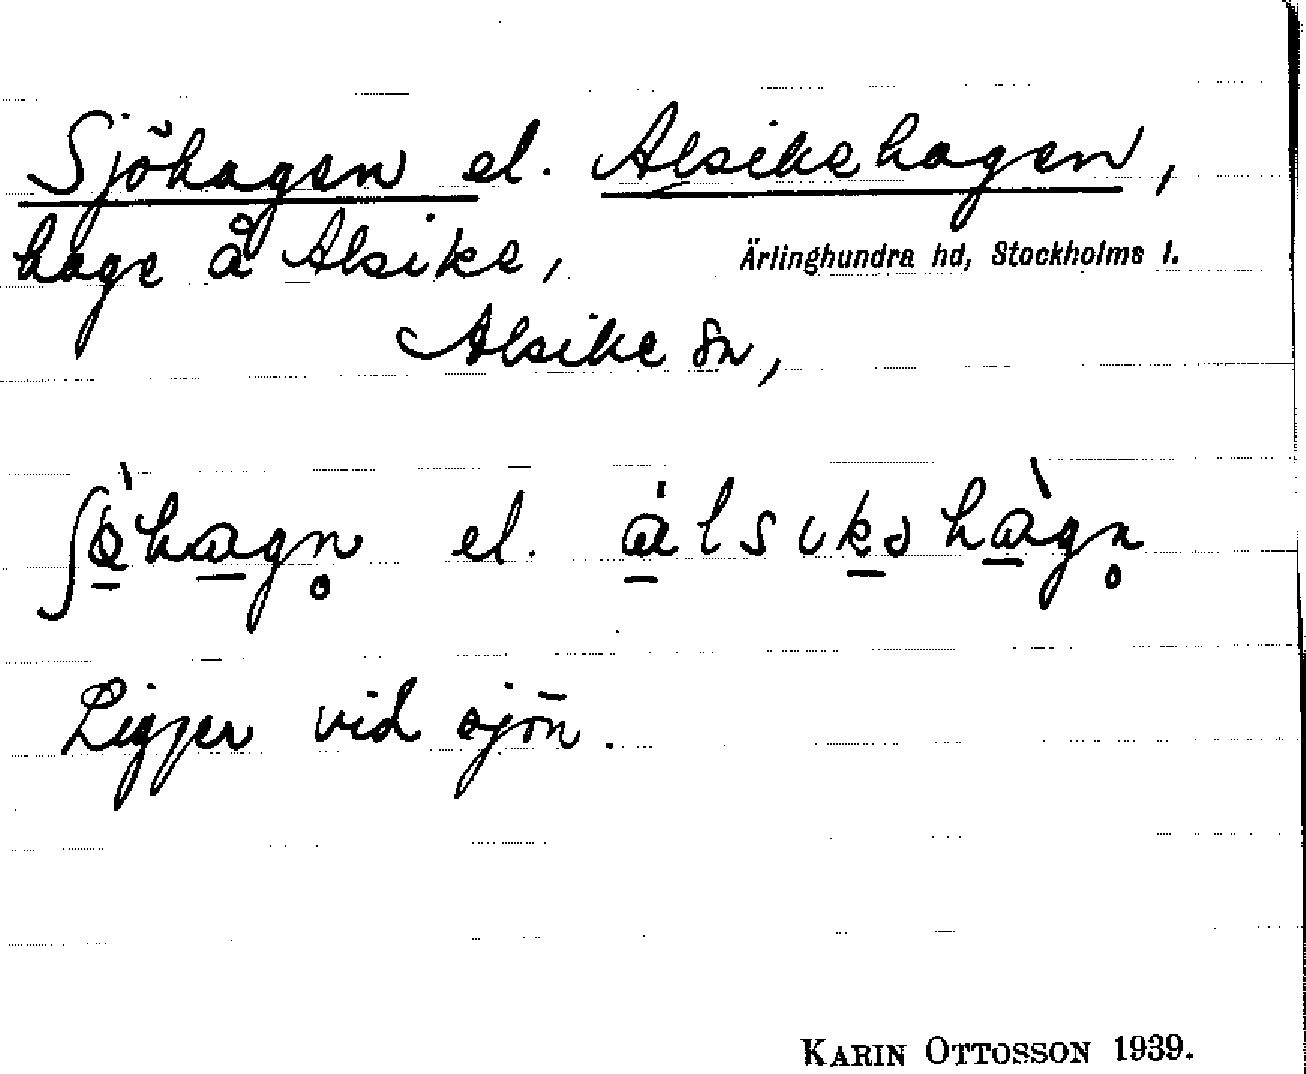 Sjöhagen el. Alsikehagen,
hage å Alsike,
Ärlinghundra hd, Stockholms l.
Alsike sn,
ʃö̀hagn̥ el. álsikəhàgn̥
Ligger vid sjön.
KARIN OTTOSSON 1939.